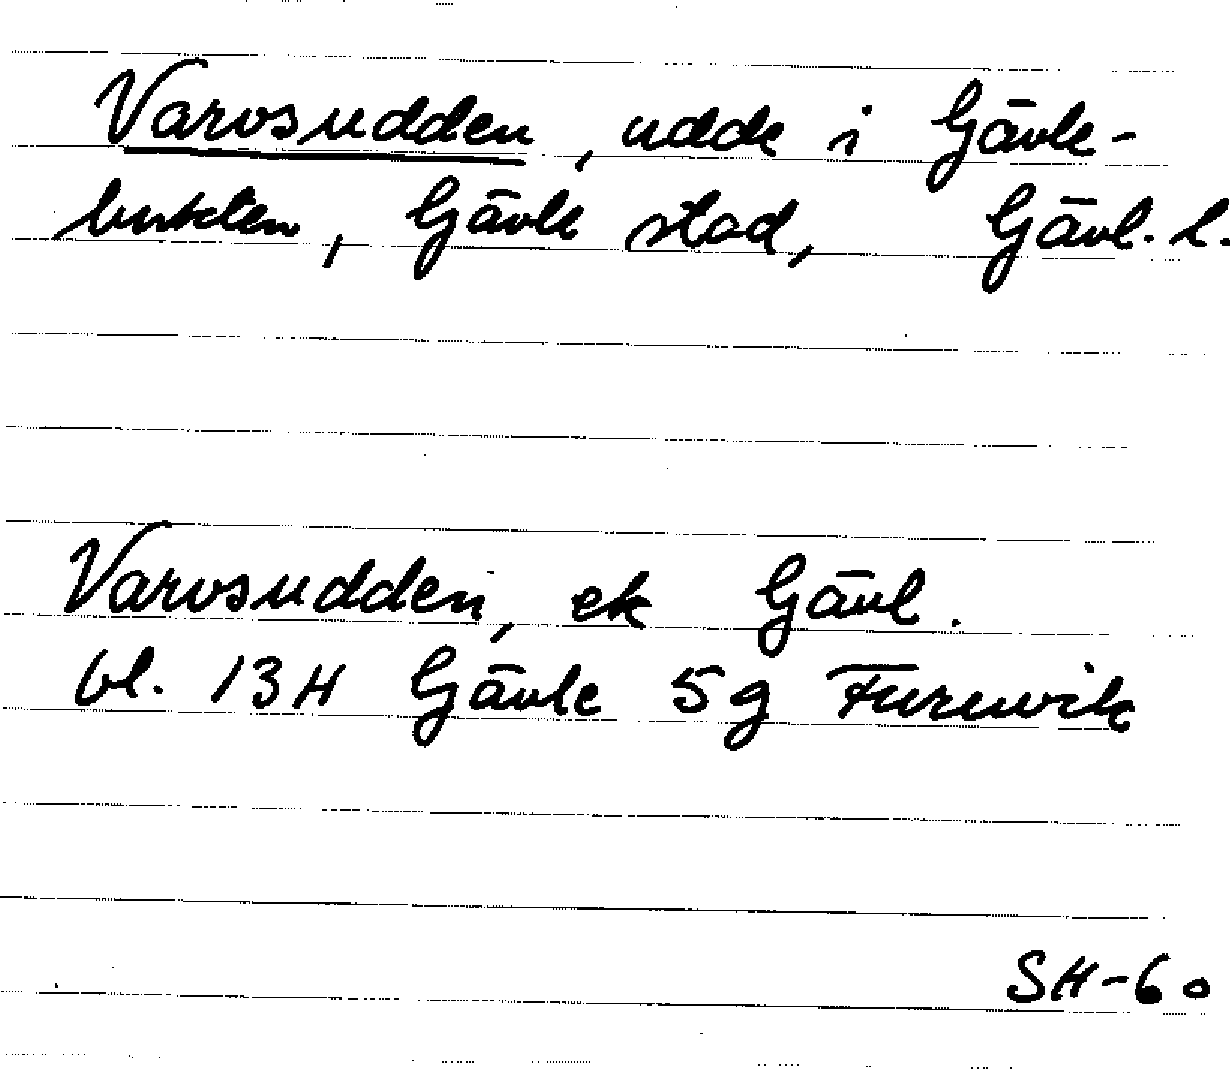 Varvsudden, udde i Gävle-
bukten, Gävle stad, Gävl. l.
Varvsudden, ek Gävl.
bl. 13H Gävle 5g Furuvik
SH-60